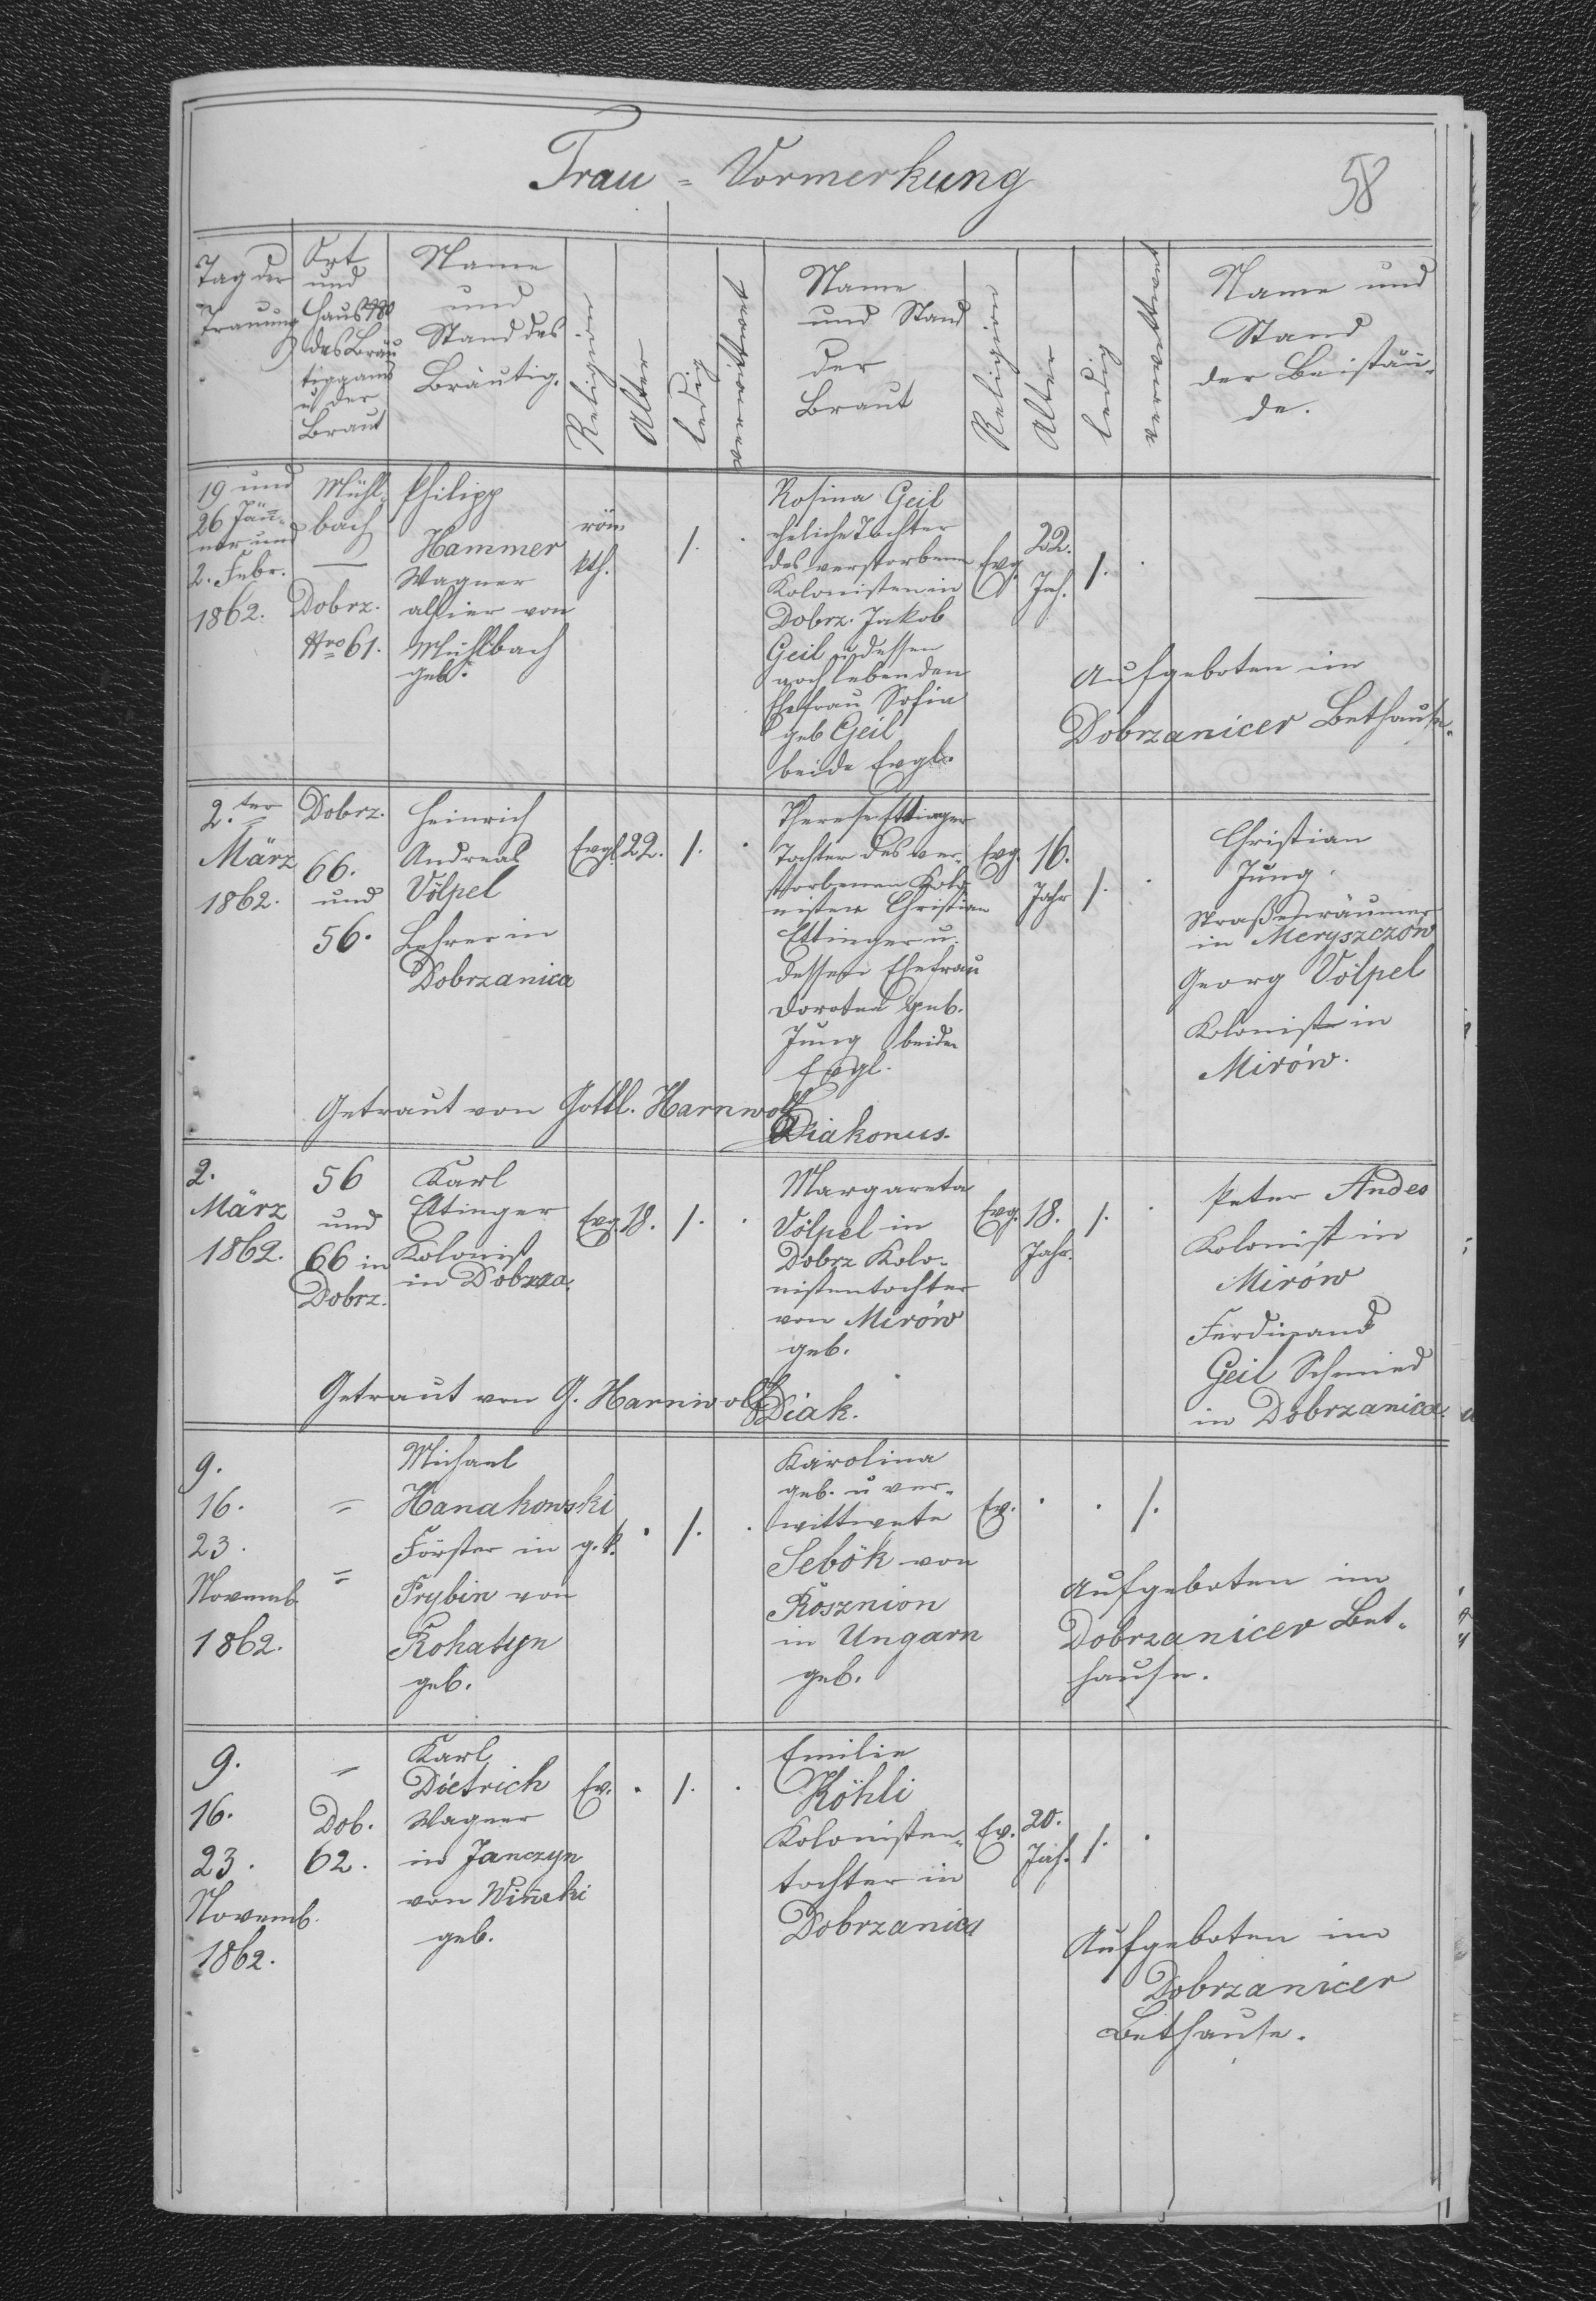 Trau = Vormerkung
58
Tag der
Trauung
Ort
und
Haus Nro
des Bräu
tiggams
u der
Braut
Name
und
Stand des
Bräutig.
Religion
Alter
Ledig
verwittwet
Name
und Stand
der
Braut
Religion
Alter
Ledig
verwittwet
Name und
Stand
der Beistän-
de.
19 und
26 Jän-
ner und
2. Febr.
1862.
Mühl-
bach
—
Dobrz.
Nro 61.
Philipp
Hammer
Wagner
allhier von
Mühlbach
geb.
röm.
kth.
1.
Rosina Geil
eheliche Tochter
des verstorbenen
Kolonisten in
Dobrz. Jakob
Geil u dessen
noch lebenden
Ehefrau Sofia
geb Geil
beide Evgl.
Evg.
22.
Jah.
1.
—
Aufgeboten im
Dobrzanicer Bethause.
2.ter
März
1862.
Dobrz.
66.
und
56.
Heinrich
Andreas
Völpel
Lehrer in
Dobrzanica
Evgl.
22.
1.
Therese Ettinger
Tochter des ver-
storbenen Kolo-
nisten Christian
Ettinger u.
dessen Ehefrau
Dorotea geb.
Jung beide
Evgl.
Evg.
16.
Jahr
1.
Christian
Jung
Straßenräumer
in Meryszczów
Georg Völpel
Kolonist in
Mirów.
Getraut von Gottl. Harnwolf
Diakonus.
2.
März
1862.
56
und
66 in
Dobrz.
Karl
Ettinger
Kolonist
in Dobrza.
Evg.
18.
1.
Margareta
Völpel in
Dobrz Kolo-
nistentochter
von Mirów
geb.
Evg.
18.
Jahr.
1.
Peter Andes
Kolonist in
Mirów
Ferdinand
Geil Schmied
in Dobrzanica.
Getraut von G. Harnwolf
Diak.
9.
16.
23.
Novemb.
1862.
=
=
Michael
Hanakowski
Förster in
Prybin von
Rohatyn
geb.
g. k.
1.
Karolina
geb. u ver-
wittwete
Sebök von
Rosznion
in Ungarn
geb.
Ev.
1.
Aufgeboten im
Dobrzanicer Bet-
hause.
9.
16.
23.
Novemb.
1862.
=
Dob.
62.
Karl
Dietrich
Wagner
in Janczyn
von
geb.
Ev.
1.
Emilie
Köhli
Kolonisten-
tochter in
Dobrzanica
Ev.
20.
Jah.
1.
Aufgeboten im
Dobrzanicer
Bethause.